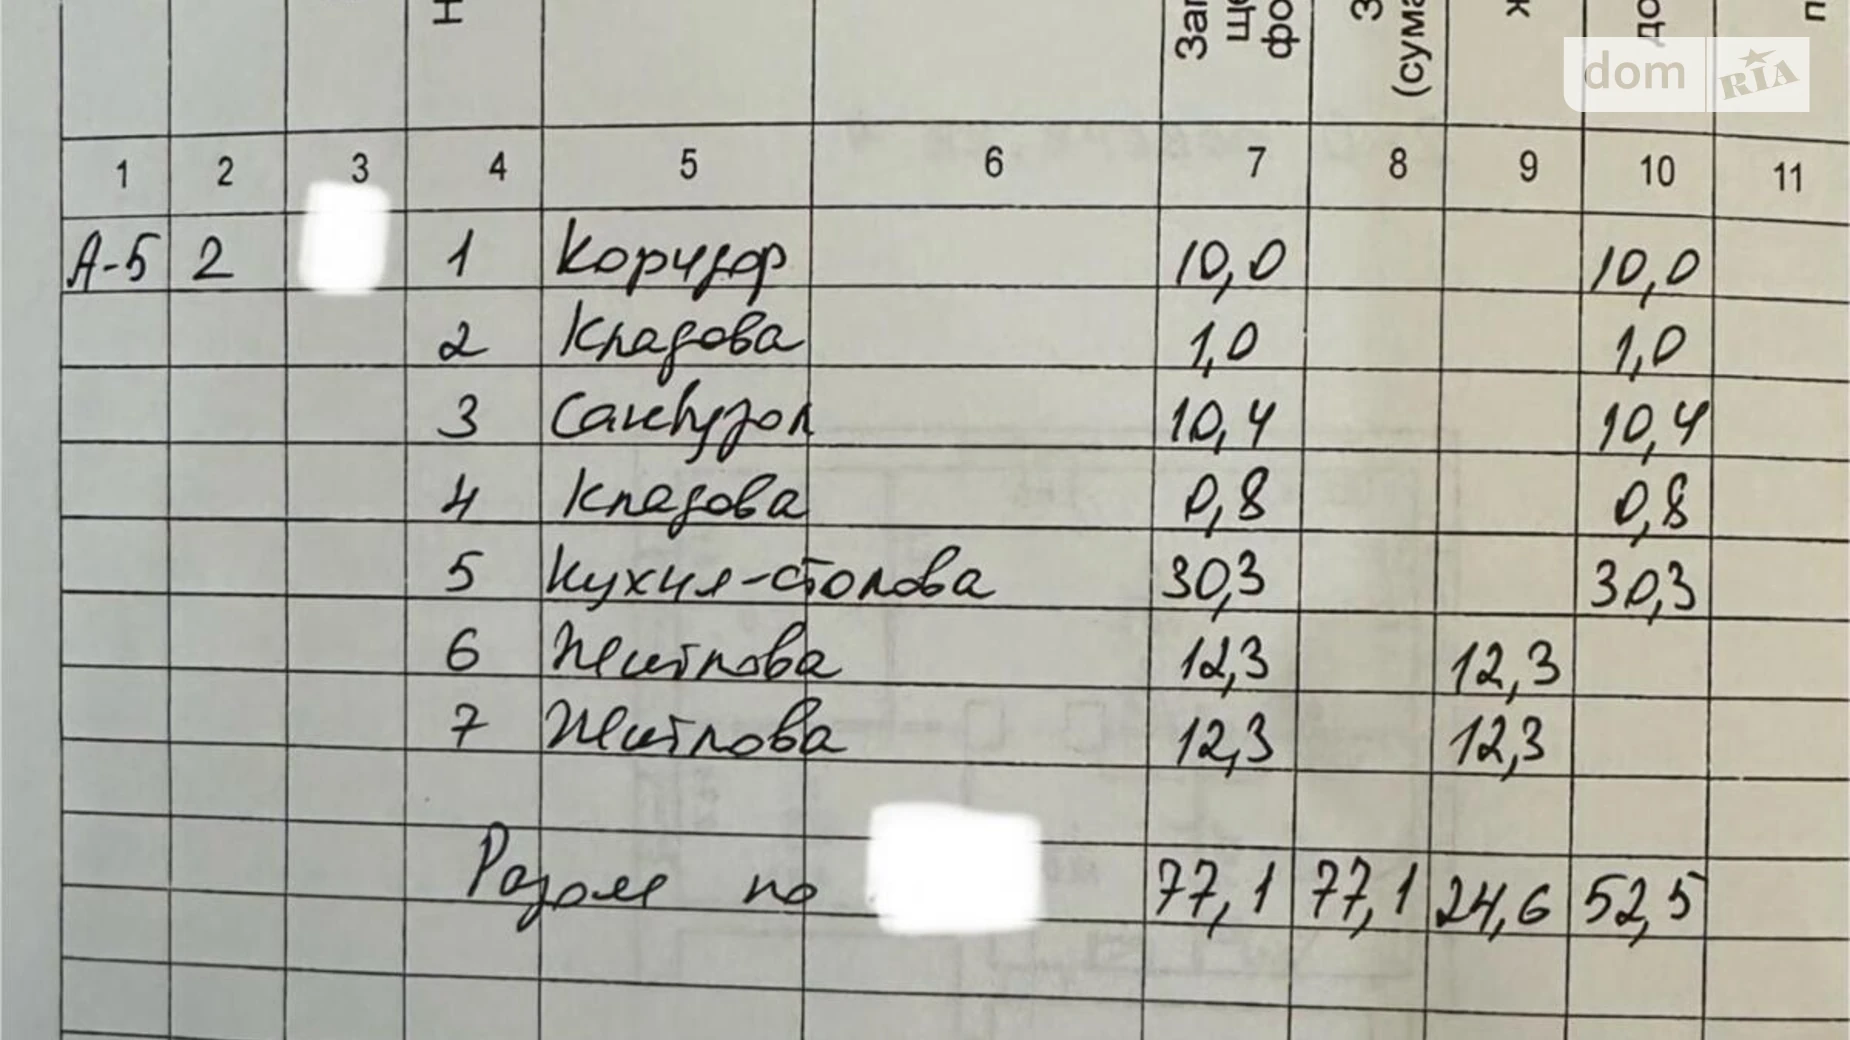 Заг
ще
фо
З
(сума
dom RIA
1 2 3 4 5 6 7 8 9 10 11
А-5 2 1 Коридор 10,0 10,0
2 Кладова 1,0 1,0
3 Санвузол 10,4 10,4
4 Кладова 0,8 0,8
5 Кухня-столова 30,3 30,3
6 Житлова 12,3 12,3
7 Житлова 12,3 12,3
Разом по 77,1 77,1 24,6 52,5